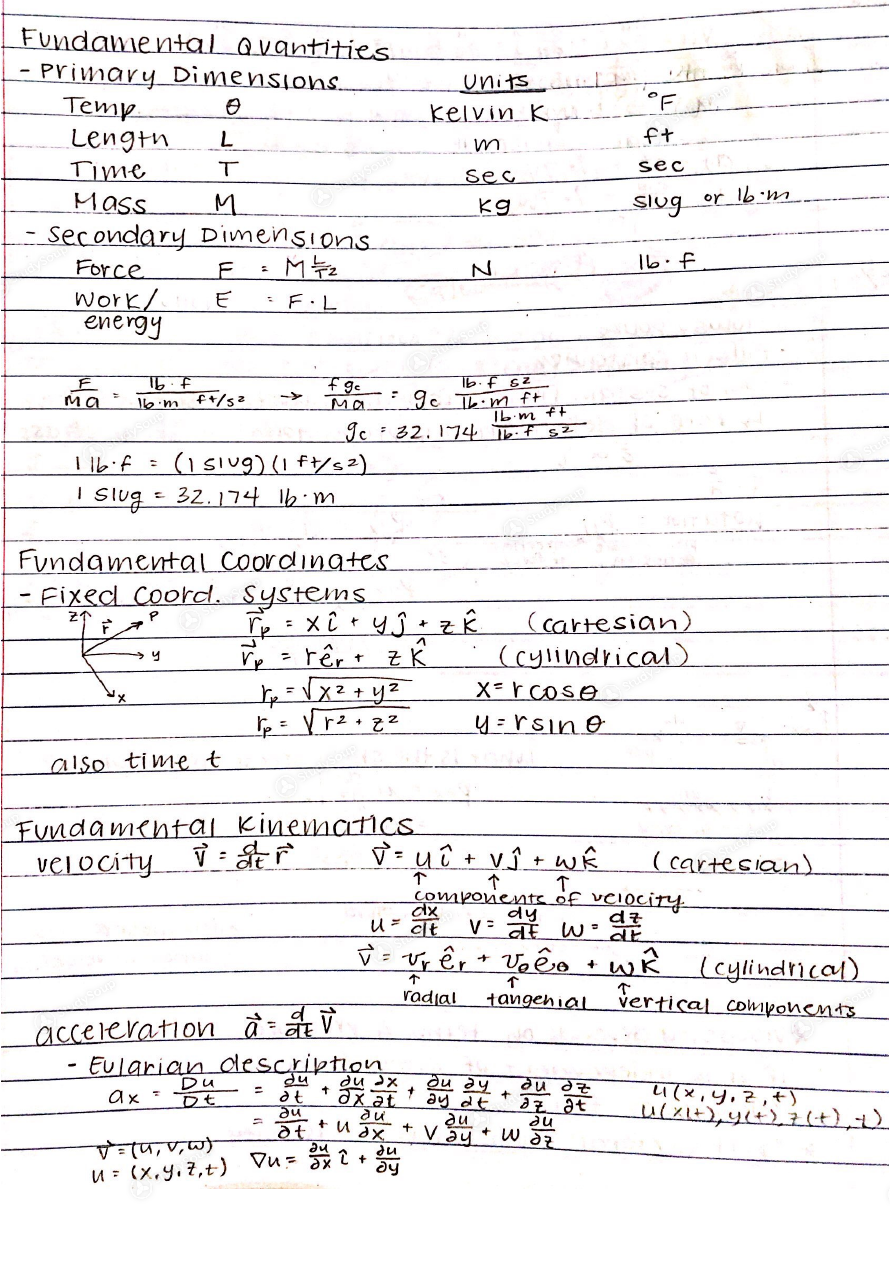 Fundamental Quantities
- Primary Dimensions Units
Temp θ Kelvin K °F
Length L m ft
Time T sec sec
Mass M kg slug or lb·m
- Secondary Dimensions
Force F = M L/T2 N lb·f
Work/ E = F·L
energy
F/Ma = lb·f/lb·m ft/s2 → fgc/Ma = gc lb·f s2/lb·m ft
gc = 32.174 lb·m ft/lb·f s2
1 lb·f = (1 slug)(1 ft/s2)
1 slug = 32.174 lb·m
Fundamental Coordinates
- Fixed Coord. Systems
z r⃗ P y x
r⃗p = xî + yĵ + zk̂ (cartesian)
r⃗p = rêr + zk̂ (cylindrical)
rp = √x2 + y2 x = rcosθ
rp = √r2 + z2 y = rsinθ
also time t
Fundamental Kinematics
velocity v⃗ = d/dt r⃗ v⃗ = uî + vĵ + wk̂ (cartesian)
↑ ↑ ↑
components of velocity
u = dx/dt v = dy/dt w = dz/dt
v⃗ = vr êr + vθ êθ + wk̂ (cylindrical)
↑ ↑ ↑
radial tangenial vertical components
acceleration a⃗ = d/dt v⃗
- Eularian description
ax = Du/Dt = ∂u/∂t + ∂u/∂x ∂x/∂t + ∂u/∂y ∂y/∂t + ∂u/∂z ∂z/∂t u(x,y,z,t)
= ∂u/∂t + u ∂u/∂x + v ∂u/∂y + w ∂u/∂z u(x(t),y(t),z(t),t)
v⃗ = (u,v,w)
u = (x,y,z,t) ∇u = ∂u/∂x î + ∂u/∂y